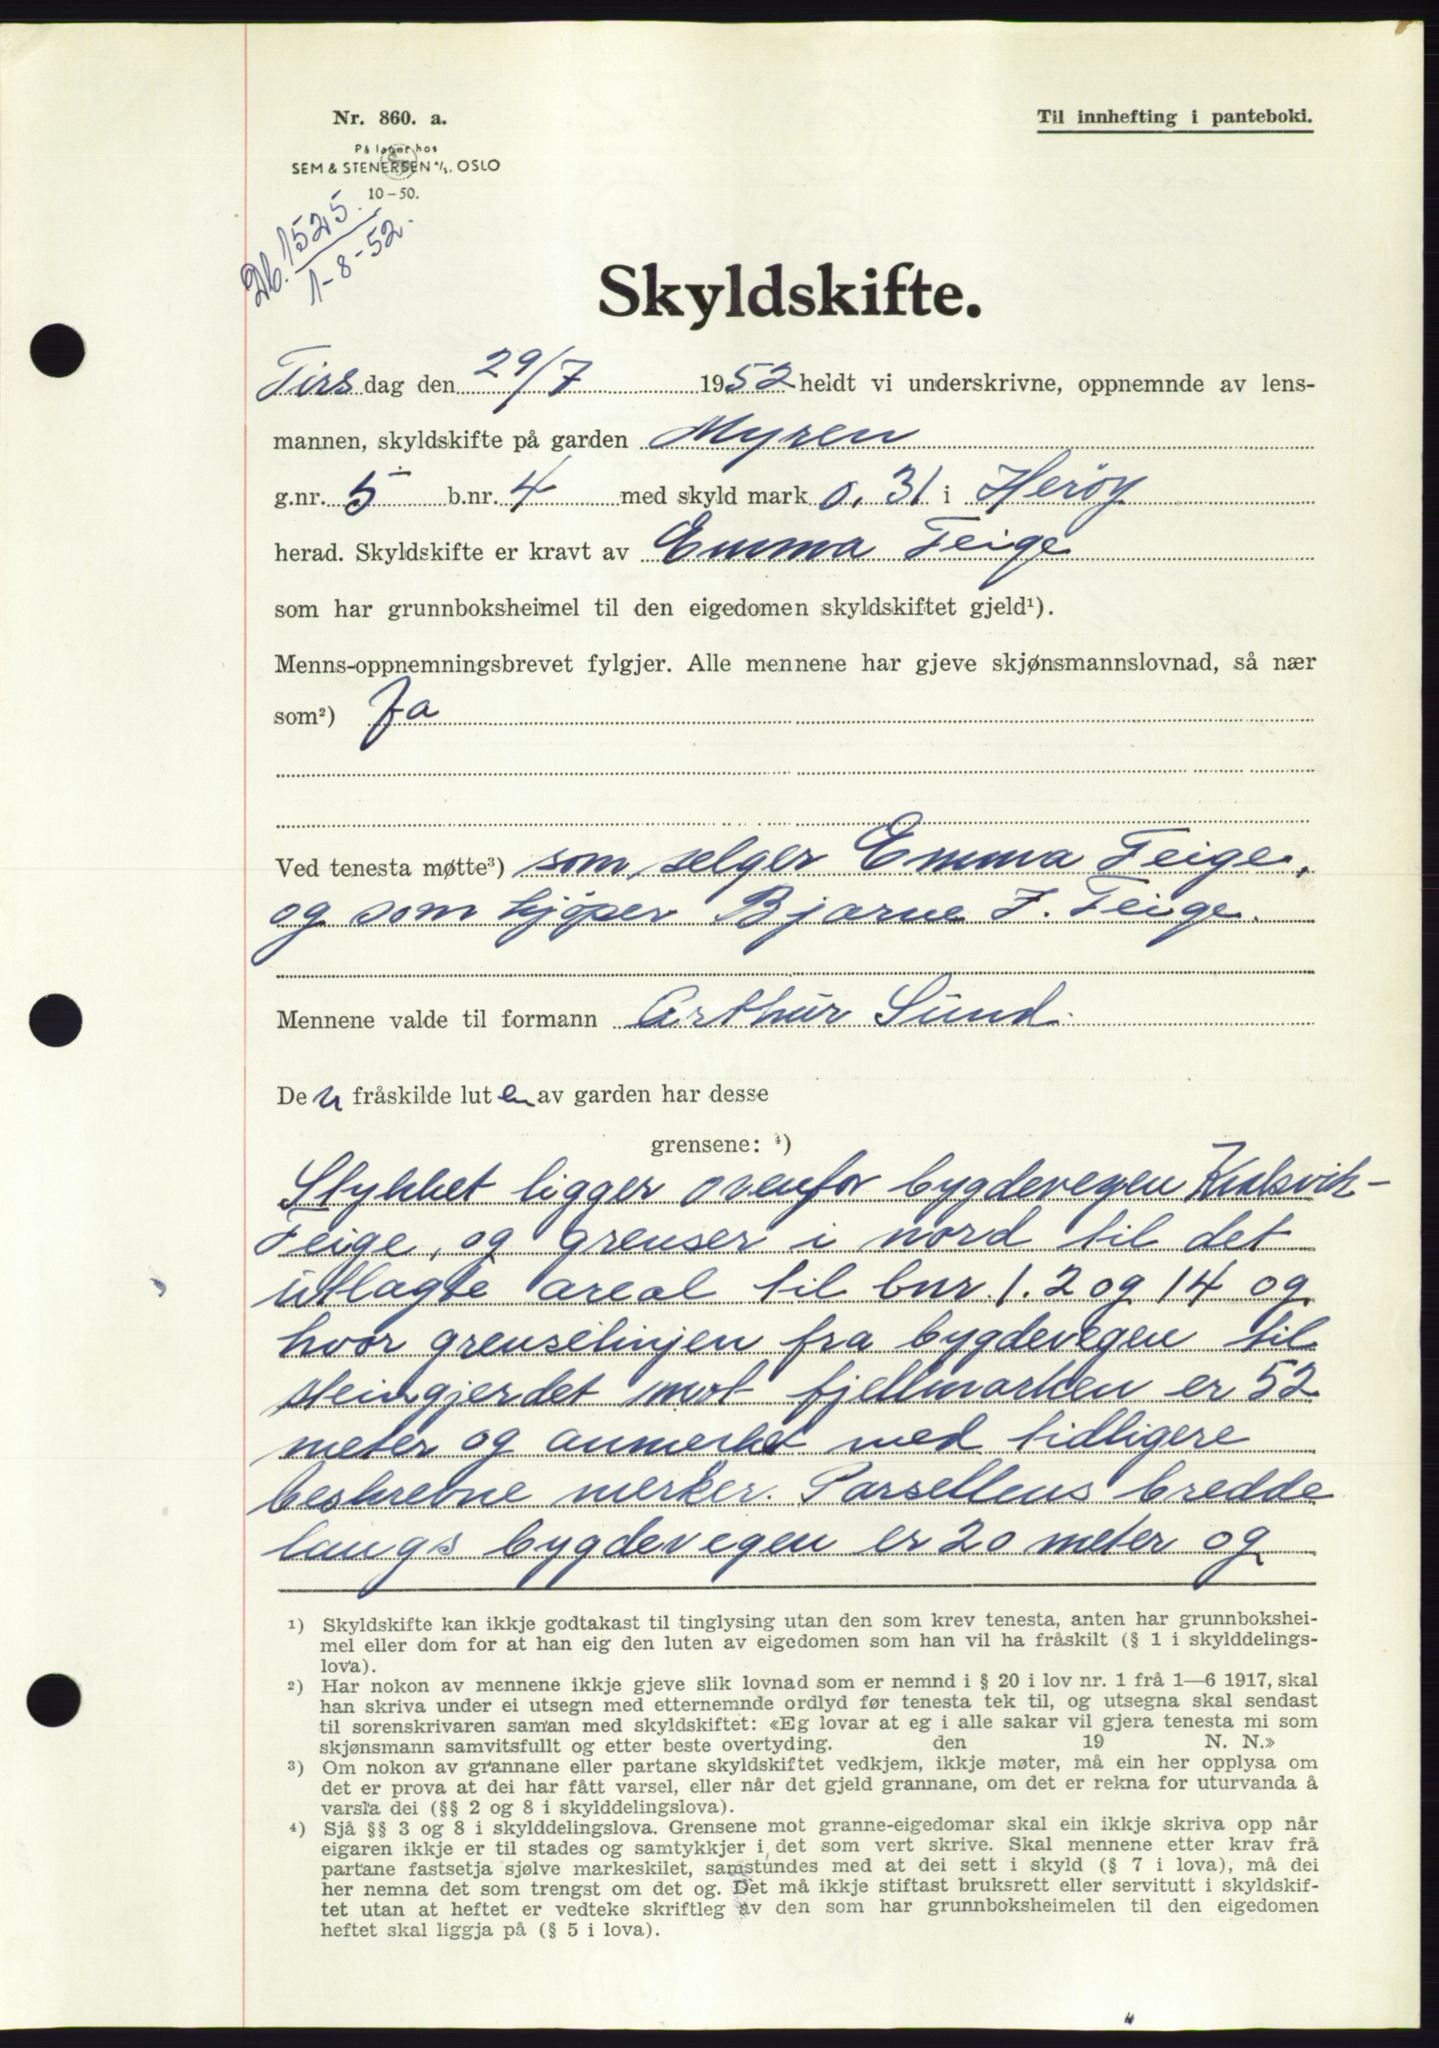 Nr. 860. a.
På lager hos
SEM & STENERSEN A/S. OSLO
10-50.
Til innhefting i panteboki.
Db. 1525.
1-8-52.
Skyldskifte.
Tirsdag den 29/7 1952 heldt vi underskrivne, oppnemnde av lens-
mannen, skyldskifte på garden Myren
g.nr. 5 b.nr. 4 med skyld mark 0.31 i Herøy
herad. Skyldskifte er kravt av Emma Teige
som har grunnboksheimel til den eigedomen skyldskiftet gjeld¹).
Menns-oppnemningsbrevet fylgjer. Alle mennene har gjeve skjønsmannslovnad, så nær
som²) Ja
Ved tenesta møtte³) som selger Emma Teige,
og som kjøper Bjarne J. Teige.
Mennene valde til formann Arthur Sund.
Den fråskilde luten av garden har desse
grensene: ⁴)
Stykket ligger ovenfor bygdevegen Kulsvik-
Teige, og grenser i nord til det
utlagte areal til bnr. 1. 2 og 14 og
hvor grenselinjen fra bygdevegen til
steingjerdet mot fjellmarken er 52
meter og anmerket med tidligere
beskrevne merker. Parsellens bredde
langs bygdevegen er 20 meter og
¹) Skyldskifte kan ikkje godtakast til tinglysing utan den som krev tenesta, anten har grunnbokshei-
mel eller dom for at han eig den luten av eigedomen som han vil ha fråskilt (§ 1 i skylddelings-
lova).
²) Har nokon av mennene ikkje gjeve slik lovnad som er nemnd i § 20 i lov nr. 1 frå 1—6 1917, skal
han skriva under ei utsegn med etternemnde ordlyd før tenesta tek til, og utsegna skal sendast
til sorenskrivaren saman med skyldskiftet: «Eg lovar at eg i alle sakar vil gjera tenesta mi som
skjønsmann samvitsfullt og etter beste overtyding. den 19 N. N.»
³) Om nokon av grannane eller partane skyldskiftet vedkjem, ikkje møter, må ein her opplysa om
det er prova at dei har fått varsel, eller når det gjeld grannane, om det er rekna for uturvanda å
varsla dei (§§ 2 og 8 i skylddelingslova).
⁴) Sjå §§ 3 og 8 i skylddelingslova. Grensene mot granne-eigedomar skal ein ikkje skriva opp når
eigaren ikkje er til stades og samtykkjer i det som vert skrive. Skal mennene etter krav frå
partane fastsetja sjølve markeskilet, samstundes med at dei sett i skyld (§ 7 i lova), må dei
her nemna det som trengst om det og. Det må ikkje stiftast bruksrett eller servitutt i skyldskif-
tet utan at heftet er vedteke skriftleg av den som har grunnboksheimelen til den eigedomen
heftet skal liggja på (§ 5 i lova).